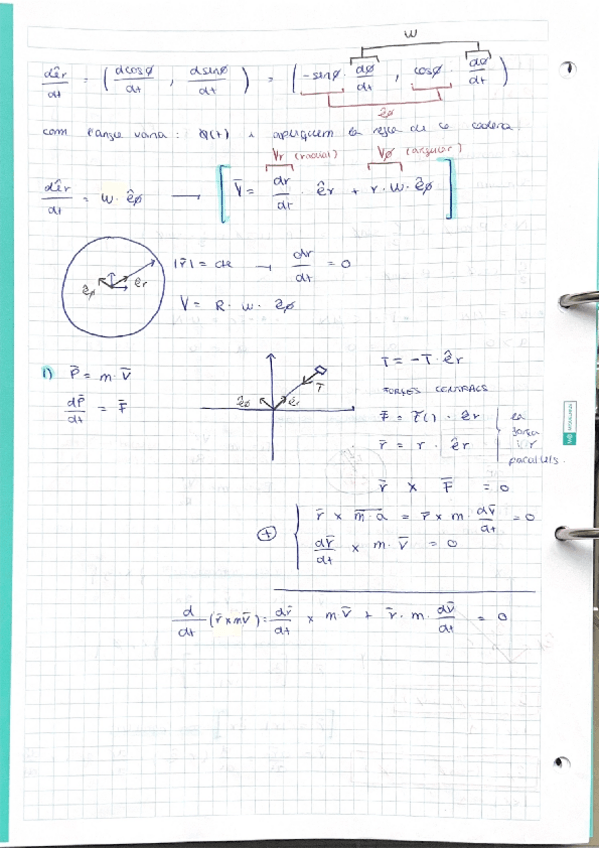 w
dêr/dt = (dcosø/dt , dsinø/dt) = (-sinø · dø/dt , cosø · dø/dt)
êø
com l'angle varia: Ø(t) → apliquem la regla de la cadena.
Vr (radial) Vø (angular)
dêr/dt = w · êø → [V̄ = dr/dt · êr + r · w · êø]
|r̄| = cte → dr/dt = 0
êø êr
V = R · w · êø
1) P̄ = m · V̄
T = -T · êr
dP̄/dt = F̄
T
êø êr
FORCES CENTRALS
F̄ = F() · êr
r̄ = r · êr
la força i r paral·lels.
r̄ x F̄ = 0
r̄ x m · a = r̄ x m · dv̄/dt = 0
+
dr̄/dt x m · V̄ = 0
d/dt (r̄ x mV̄) = dr̄/dt x mV̄ + r̄ · m · dV̄/dt = 0